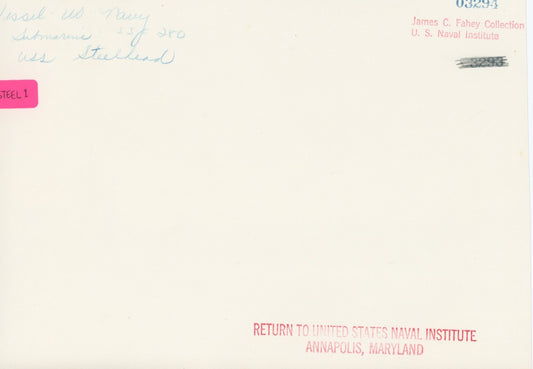 Vessel - US Navy
Submarine: SS 280
USS Steelhead
03294
James C. Fahey Collection
U. S. Naval Institute
3293
STEEL 1
RETURN TO UNITED STATES NAVAL INSTITUTE
ANNAPOLIS, MARYLAND